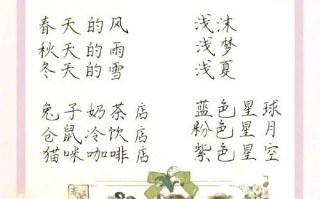 春天的风
秋天的雨
冬天的雪
浅沫
浅梦
浅夏
兔子奶茶店
仓鼠冷饮店
猫咪咖啡店
蓝色星球
粉色星月
紫色星空